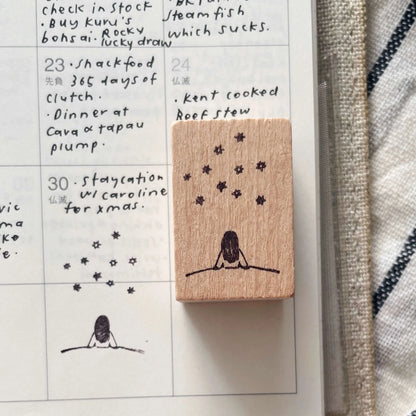 check in stock
· Buy kuru's
bonsai. Rocky
lucky draw
steamfish
which sucks.
23 · shackfood
先負 365 days of
clutch.
· Dinner at
Cava & tapau
plump.
24
仏滅
· Kent cooked
Beef stew
30 · staycation
仏滅 w/ caroline
for xmas.